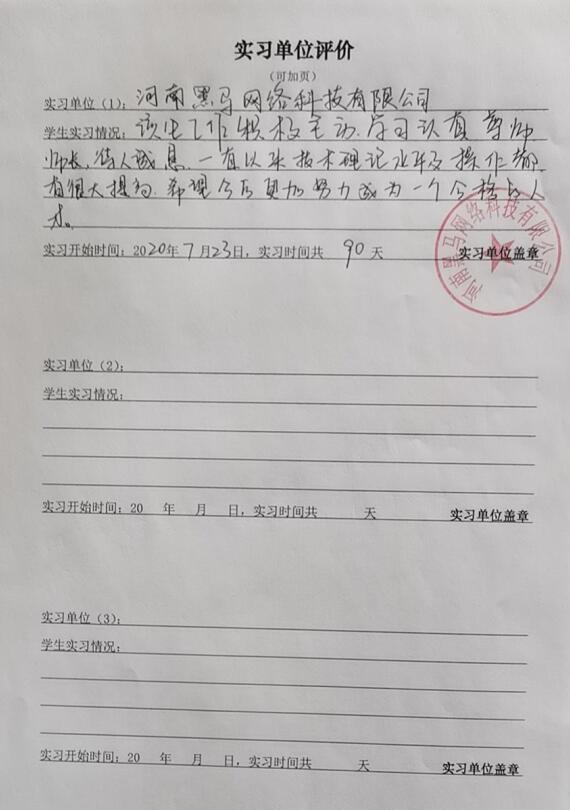 实习单位评价
（可加页）
实习单位（1）：河南黑马网络科技有限公司
学生实习情况：该生工作积极主动，学习认真，尊师
师长，待人诚恳，一直以来技术理论水平及操作都
有很大提高，希望今后更加努力成为一个合格的人
才。
实习开始时间：2020年7月23日，实习时间共 90 天 实习单位盖章
河南黑马网络科技有限公司
实习单位（2）：
学生实习情况：
实习开始时间：20 年 月 日，实习时间共 天 实习单位盖章
实习单位（3）：
学生实习情况：
实习开始时间：20 年 月 日，实习时间共 天 实习单位盖章